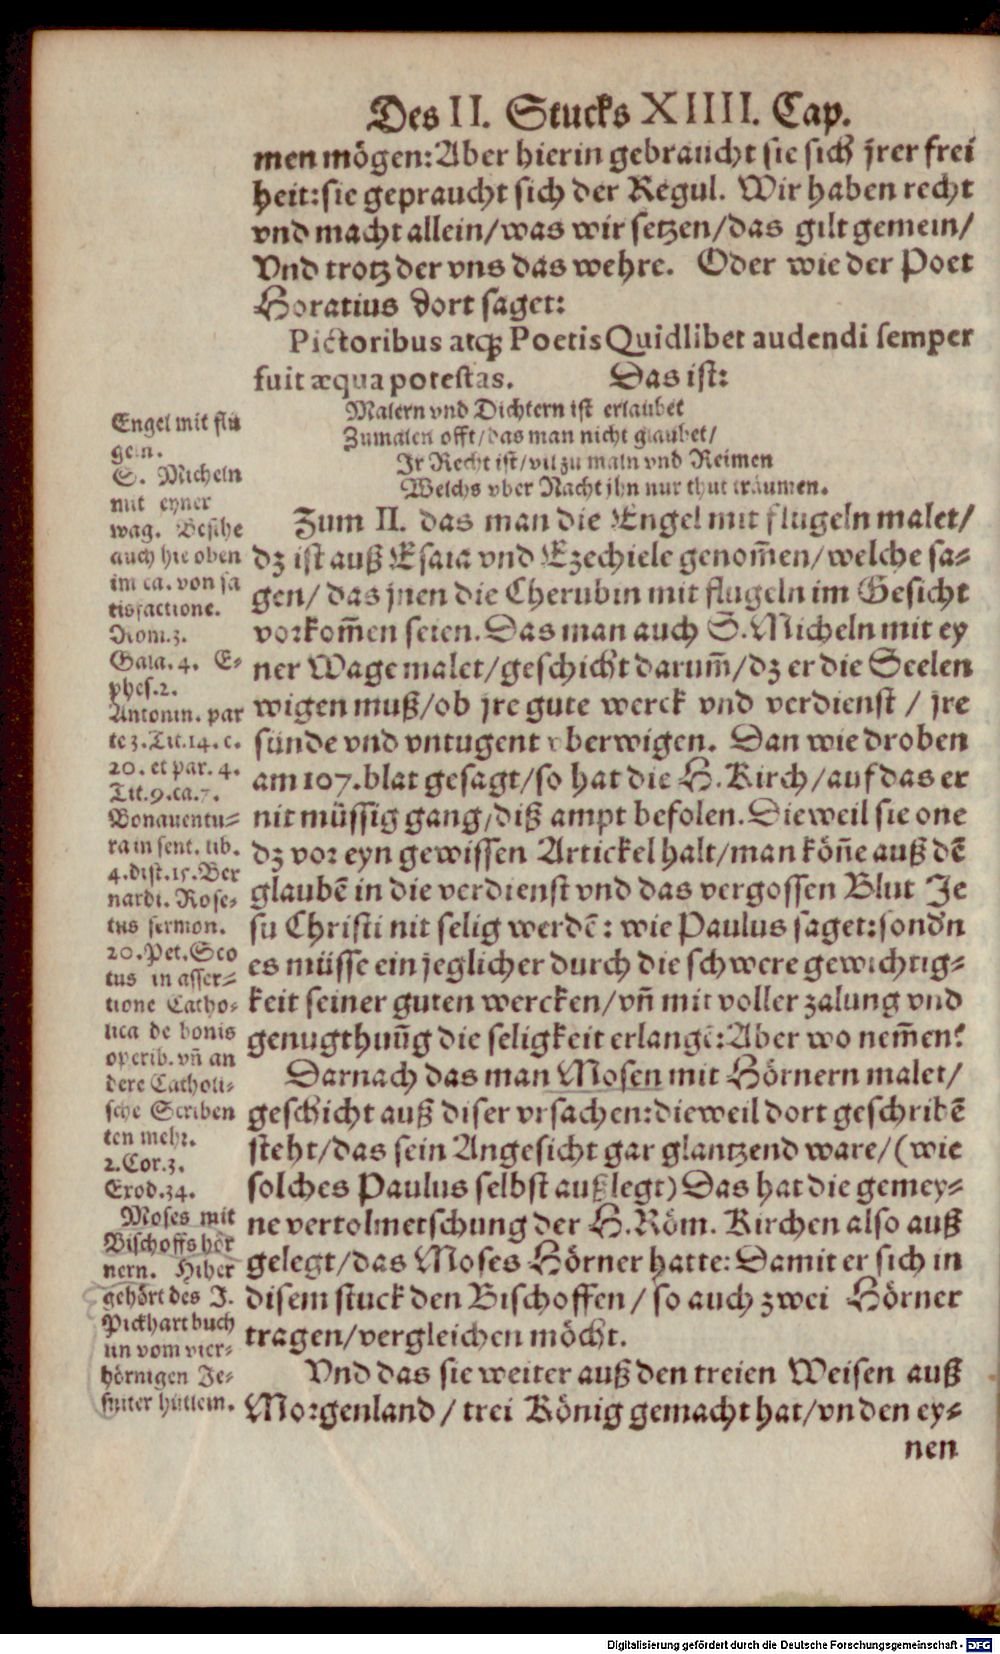 Des II. Stucks XIIII. Cap.
men mögen: Aber hierin gebraucht sie sich jrer frei
heit: sie gepraucht sich der Regul. Wir haben recht
vnd macht allein/ was wir setzen/ das gilt gemein/
Vnd trotz der vns das wehre. Oder wie der Poet
Horatius dort saget:
Pictoribus atq; Poetis Quidlibet audendi semper
fuit æqua potestas. Das ist:
Malern vnd Dichtern ist erlaubet
Zumalen offt/ das man nicht glaubet/
Ir Recht ist/ vil zu maln vnd Reimen
Welchs vber Nacht jhn nur thut träumen.
Zum II. das man die Engel mit flugeln malet/
dz ist auß Esaia vnd Ezechiele genom̃en/ welche sa-
gen/ das jnen die Cherubin mit flugeln im Gesicht
vorkom̃en seien. Das man auch S. Micheln mit ey
ner Wage malet/ geschicht darum̃/ dz er die Seelen
wigen muß/ ob jre gute werck vnd verdienst / jre
sünde vnd vntugent vberwigen. Dan wie droben
am 107. blat gesagt/ so hat die H. Kirch/ auf das er
nit müssig gang/ diß ampt befolen. Dieweil sie one
dz vor eyn gewissen Artickel halt/ man kön̄e auß dē
glaubē in die verdienst vnd das vergossen Blut Je
su Christi nit selig werdē: wie Paulus saget: sond'n
es müsse ein jeglicher durch die schwere gewichtig-
keit seiner guten wercken/ vn̄ mit voller zalung vnd
genugthun̄g die seligkeit erlangē: Aber wo nem̃en?
Darnach das man Mosen mit Hörnern malet/
geschicht auß diser vrsachen: dieweil dort geschribē
steht/ das sein Angesicht gar glantzend ware/ (wie
solches Paulus selbst außlegt) Das hat die gemey-
ne vertolmetschung der H. Röm. Kirchen also auß
gelegt/ das Moses Hörner hatte: Damit er sich in
disem stuck den Bischoffen / so auch zwei Hörner
tragen/ vergleichen möcht.
Vnd das sie weiter auß den treien Weisen auß
Morgenland / trei König gemacht hat/ vn den ey-
nen
Engel mit flü
geln.
S. Micheln
mit eyner
wag. Besihe
auch hie oben
im ca. von sa
tisfactione.
Rom.3.
Gala.4. E-
phes.2.
Antonin. par
te 3. Tit.14. c.
20. et par. 4.
Tit.9.ca.7.
Bonauentu-
ra in sent. lib.
4. dist.15. Ber
nardi. Rose-
tus sermon.
20. Pet. Sco
tus in asser-
tione Catho-
lica de bonis
operib. vn̄ an
dere Catholi-
sche Scriben
ten mehr.
2.Cor.3.
Exod.34.
Moses mit
Bischoffs hör
nern. Hiher
gehört des J.
Pickhart buch
lin vom vier-
hörnigen Je-
suiter hütlein.
Digitalisierung gefördert durch die Deutsche Forschungsgemeinschaft - DFG